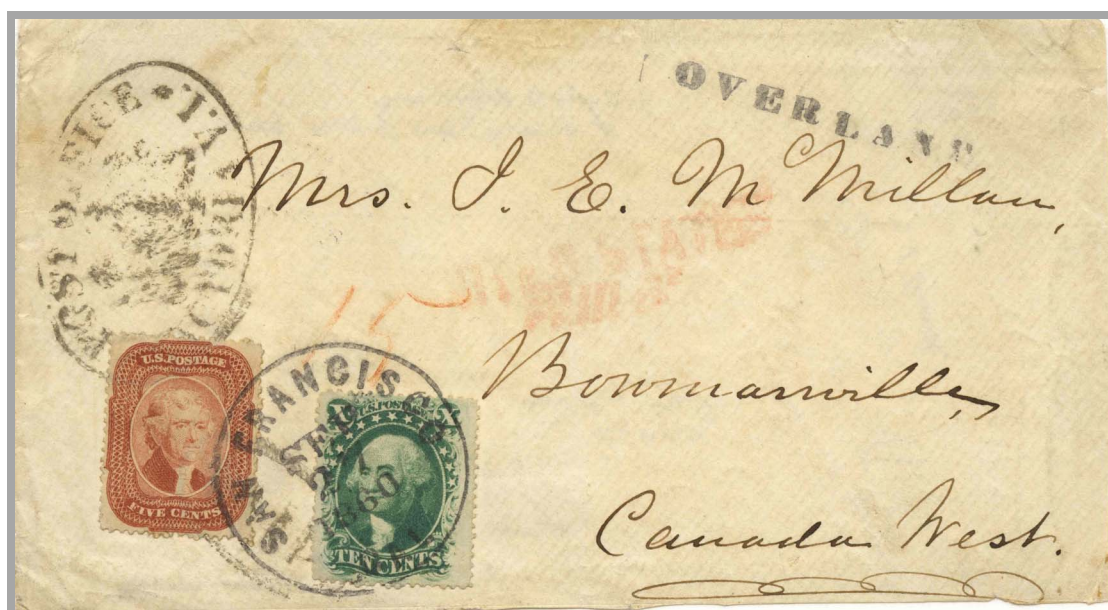 OVERLAND
POST OFFICE
Mrs. J. E. McMillan,
15
Bowmanville,
Canada West.
U.S. POSTAGE
FIVE CENTS
SAN FRANCISCO
SEP
1860
U.S. POSTAGE
X
TEN CENTS